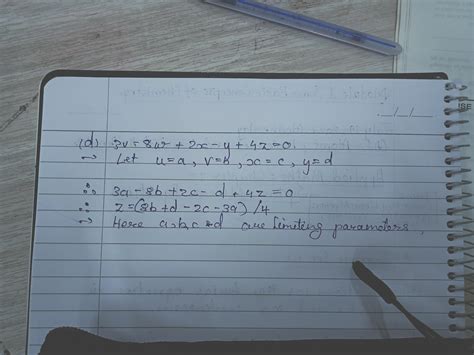 (d) 3u - 8v + 2x - y + 4z = 0
→ Let u = a, v = b, x = c, y = d
∴ 3a - 8b + 2c - d + 4z = 0
∴ z = (8b + d - 2c - 3a) / 4
→ Here a, b, c & d are limiting parameters,